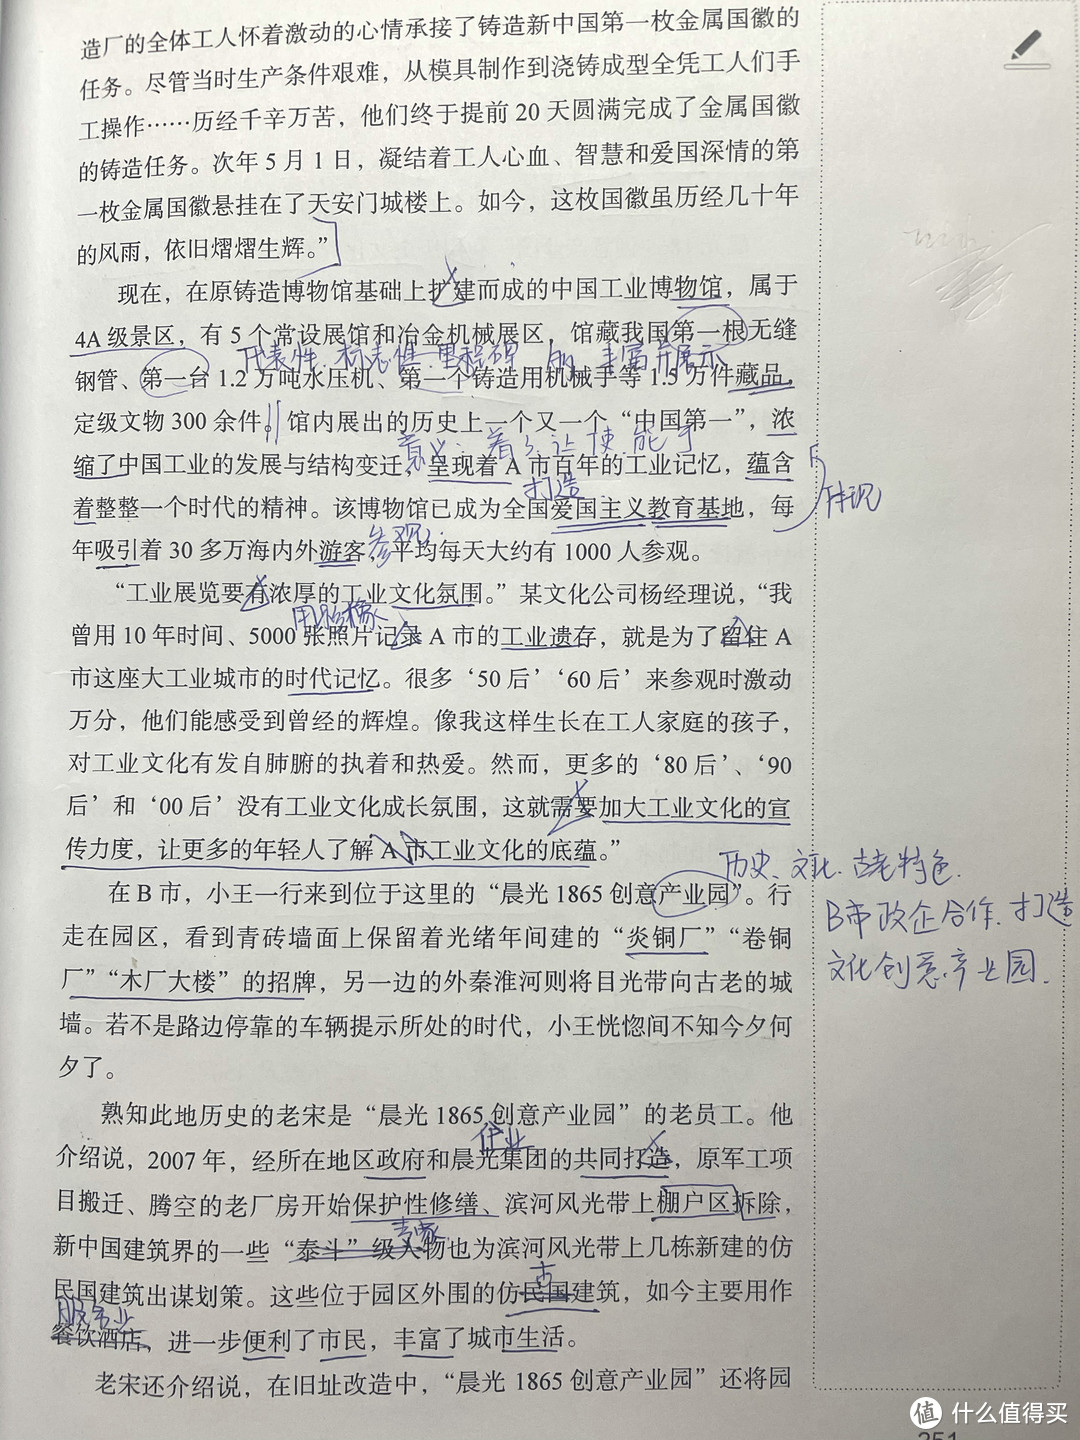 造厂的全体工人怀着激动的心情承接了铸造新中国第一枚金属国徽的
任务。尽管当时生产条件艰难，从模具制作到浇铸成型全凭工人们手
工操作……历经千辛万苦，他们终于提前 20 天圆满完成了金属国徽
的铸造任务。次年 5 月 1 日，凝结着工人心血、智慧和爱国深情的第
一枚金属国徽悬挂在了天安门城楼上。如今，这枚国徽虽历经几十年
的风雨，依旧熠熠生辉。”
现在，在原铸造博物馆基础上扩建而成的中国工业博物馆，属于
4A 级景区，有 5 个常设展馆和冶金机械展区，馆藏我国第一根无缝
代表性、标志性、里程碑 的 丰富并展示
钢管、第一台 1.2 万吨水压机、第一个铸造用机械手等 1.5 万件藏品，
定级文物 300 余件。馆内展出的历史上一个又一个“中国第一”，浓
意义：着了让使能了
缩了中国工业的发展与结构变迁，呈现着 A 市百年的工业记忆，蕴含
打造
体现
着整整一个时代的精神。该博物馆已成为全国爱国主义教育基地，每
参观
年吸引着 30 多万海内外游客，平均每天大约有 1000 人参观。
“工业展览要有浓厚的工业文化氛围。”某文化公司杨经理说，“我
用影像
曾用 10 年时间、5000 张照片记录 A 市的工业遗存，就是为了留住 A
市这座大工业城市的时代记忆。很多‘50 后’‘60 后’来参观时激动
万分，他们能感受到曾经的辉煌。像我这样生长在工人家庭的孩子，
对工业文化有发自肺腑的执着和热爱。然而，更多的‘80 后’、‘90
后’和‘00 后’没有工业文化成长氛围，这就需要加大工业文化的宣
传力度，让更多的年轻人了解 A 市工业文化的底蕴。”
历史、文化、古老特色.
在 B 市，小王一行来到位于这里的“晨光 1865 创意产业园”。行
B市政企合作、打造
走在园区，看到青砖墙面上保留着光绪年间建的“炎铜厂”“卷铜
文化创意产业园.
厂”“木厂大楼”的招牌，另一边的外秦淮河则将目光带向古老的城
墙。若不是路边停靠的车辆提示所处的时代，小王恍惚间不知今夕何
夕了。
熟知此地历史的老宋是“晨光 1865 创意产业园”的老员工。他
企业
介绍说，2007 年，经所在地区政府和晨光集团的共同打造，原军工项
目搬迁、腾空的老厂房开始保护性修缮、滨河风光带上棚户区拆除，
专家
新中国建筑界的一些“泰斗”级人物也为滨河风光带上几栋新建的仿
古
民国建筑出谋划策。这些位于园区外围的仿民国建筑，如今主要用作
服务业
餐饮酒店，进一步便利了市民，丰富了城市生活。
老宋还介绍说，在旧址改造中，“晨光 1865 创意产业园”还将园
值 什么值得买